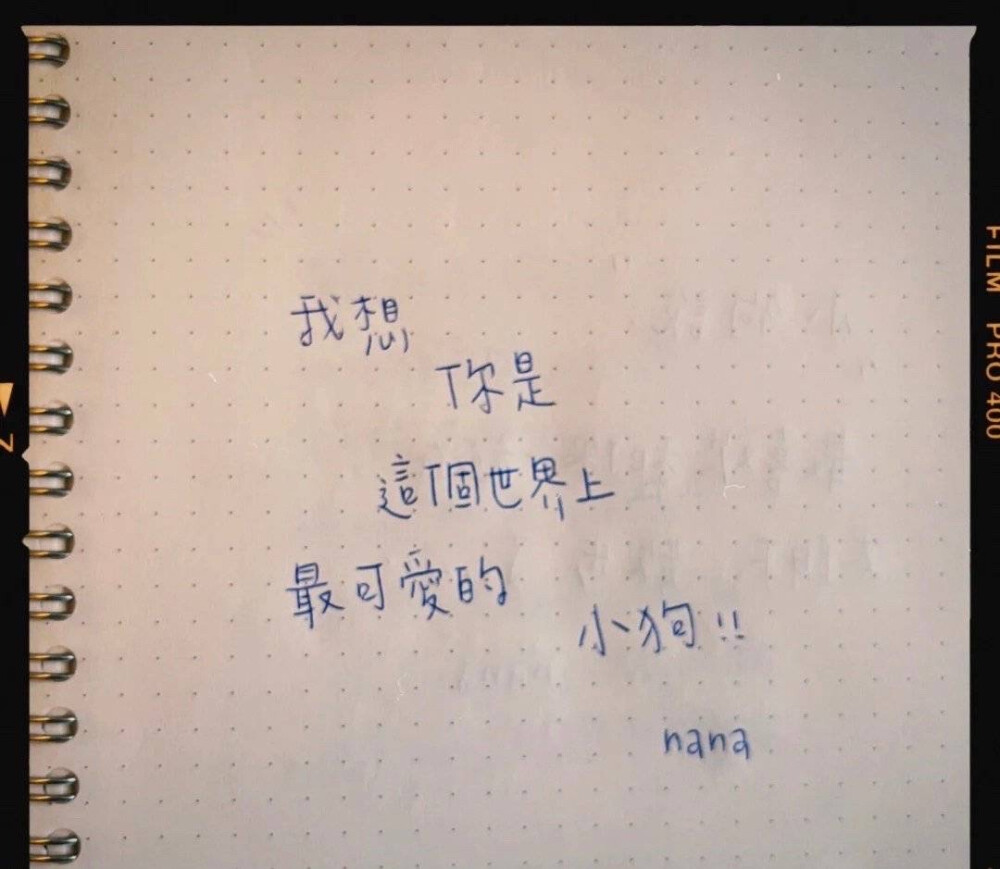 我想
你是
這個世界上
最可愛的
小狗!!
nana
FILM PRO 400
7